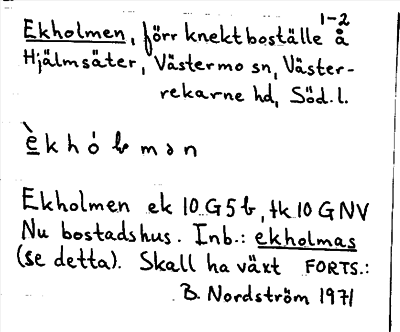 1-2
Ekholmen, förr knektboställe å
Hjälmsäter, Västermo sn, Väster-
rekarne hd, Söd. l.
Ekholmen ek 10 G5b, tk 10 GNV
Nu bostadshus. Inb.: ekholmas
(se detta). Skall ha växt FORTS.:
B. Nordström 1971